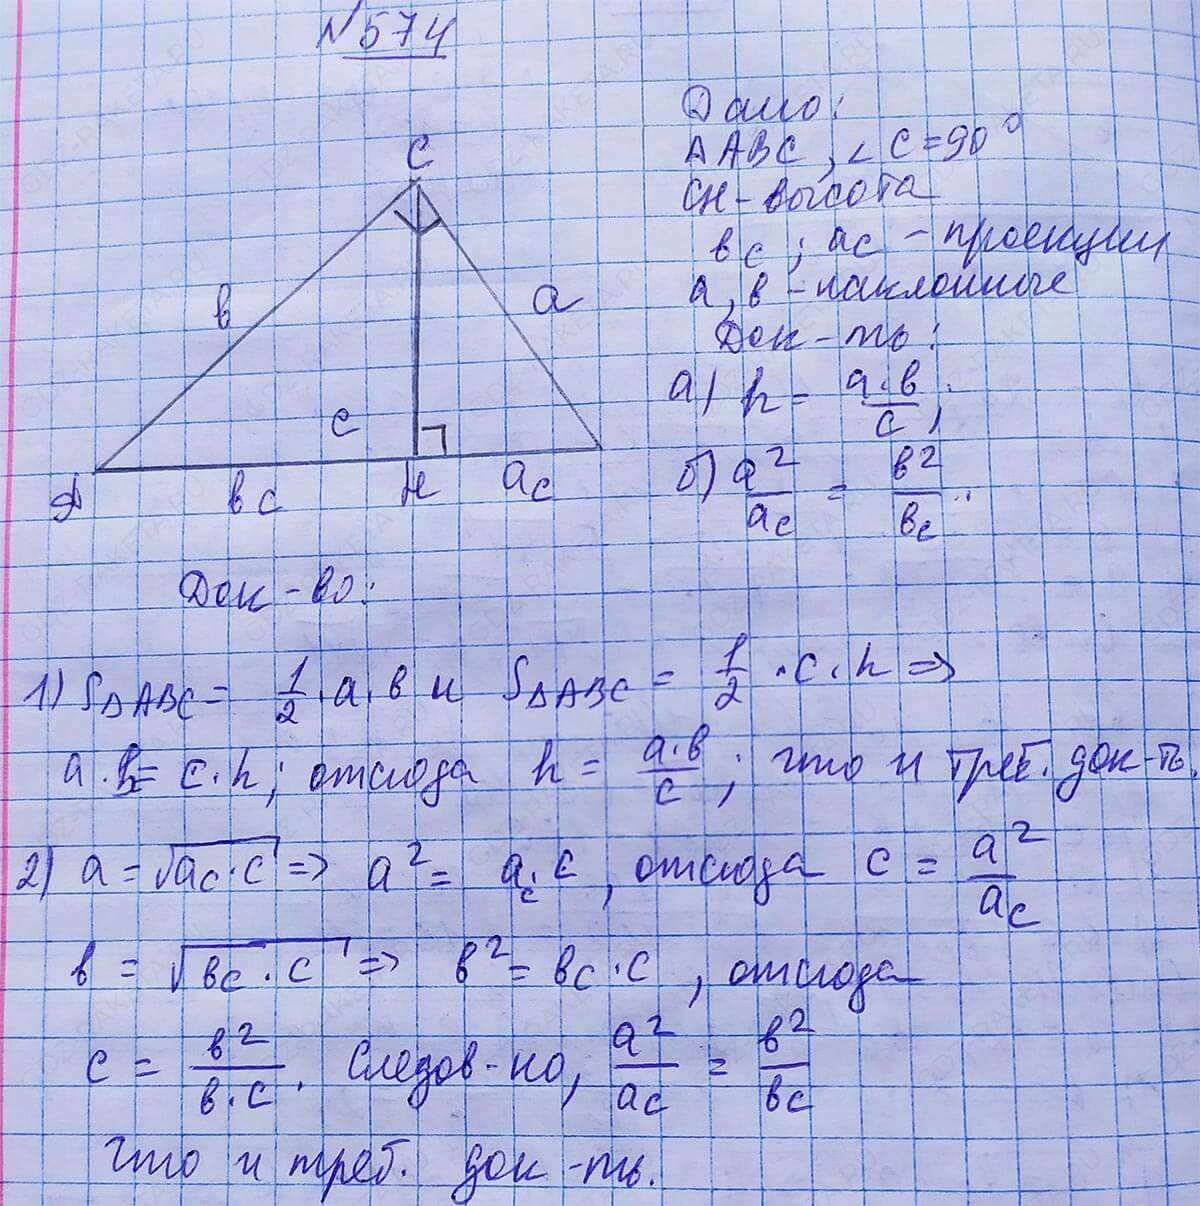 №574
Дано:
△ABC, ∠C=90°
CH-высота
вc; ac - проекции
a, в - наклонные
Док-ть:
а) h = a·в/c;
б) a²/ac = в²/вc.
C
в
a
c
A
вc
H
ac
Док-во:
1) S△ABC = 1/2·a·в и S△ABC = 1/2·c·h ⇒
a·в = c·h; отсюда h = a·в/c; что и треб. док-ть.
2) a = √ac·c ⇒ a² = ac·c, отсюда c = a²/ac
в = √вc·c ⇒ в² = вc·c, отсюда
c = в²/в·c. Следов-но, a²/ac = в²/вc
Что и треб. док-ть.